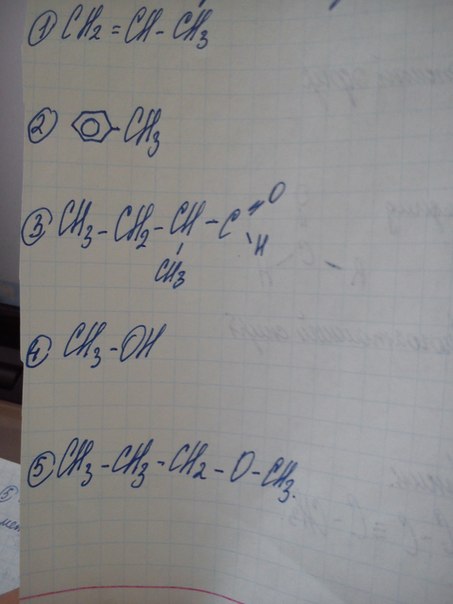 ① CH2 = CH - CH3
② - CH3
③ CH3 - CH2 - CH - C = O
H
CH3
④ CH3 - OH
⑤ CH3 - CH3 - CH2 - O - CH3.